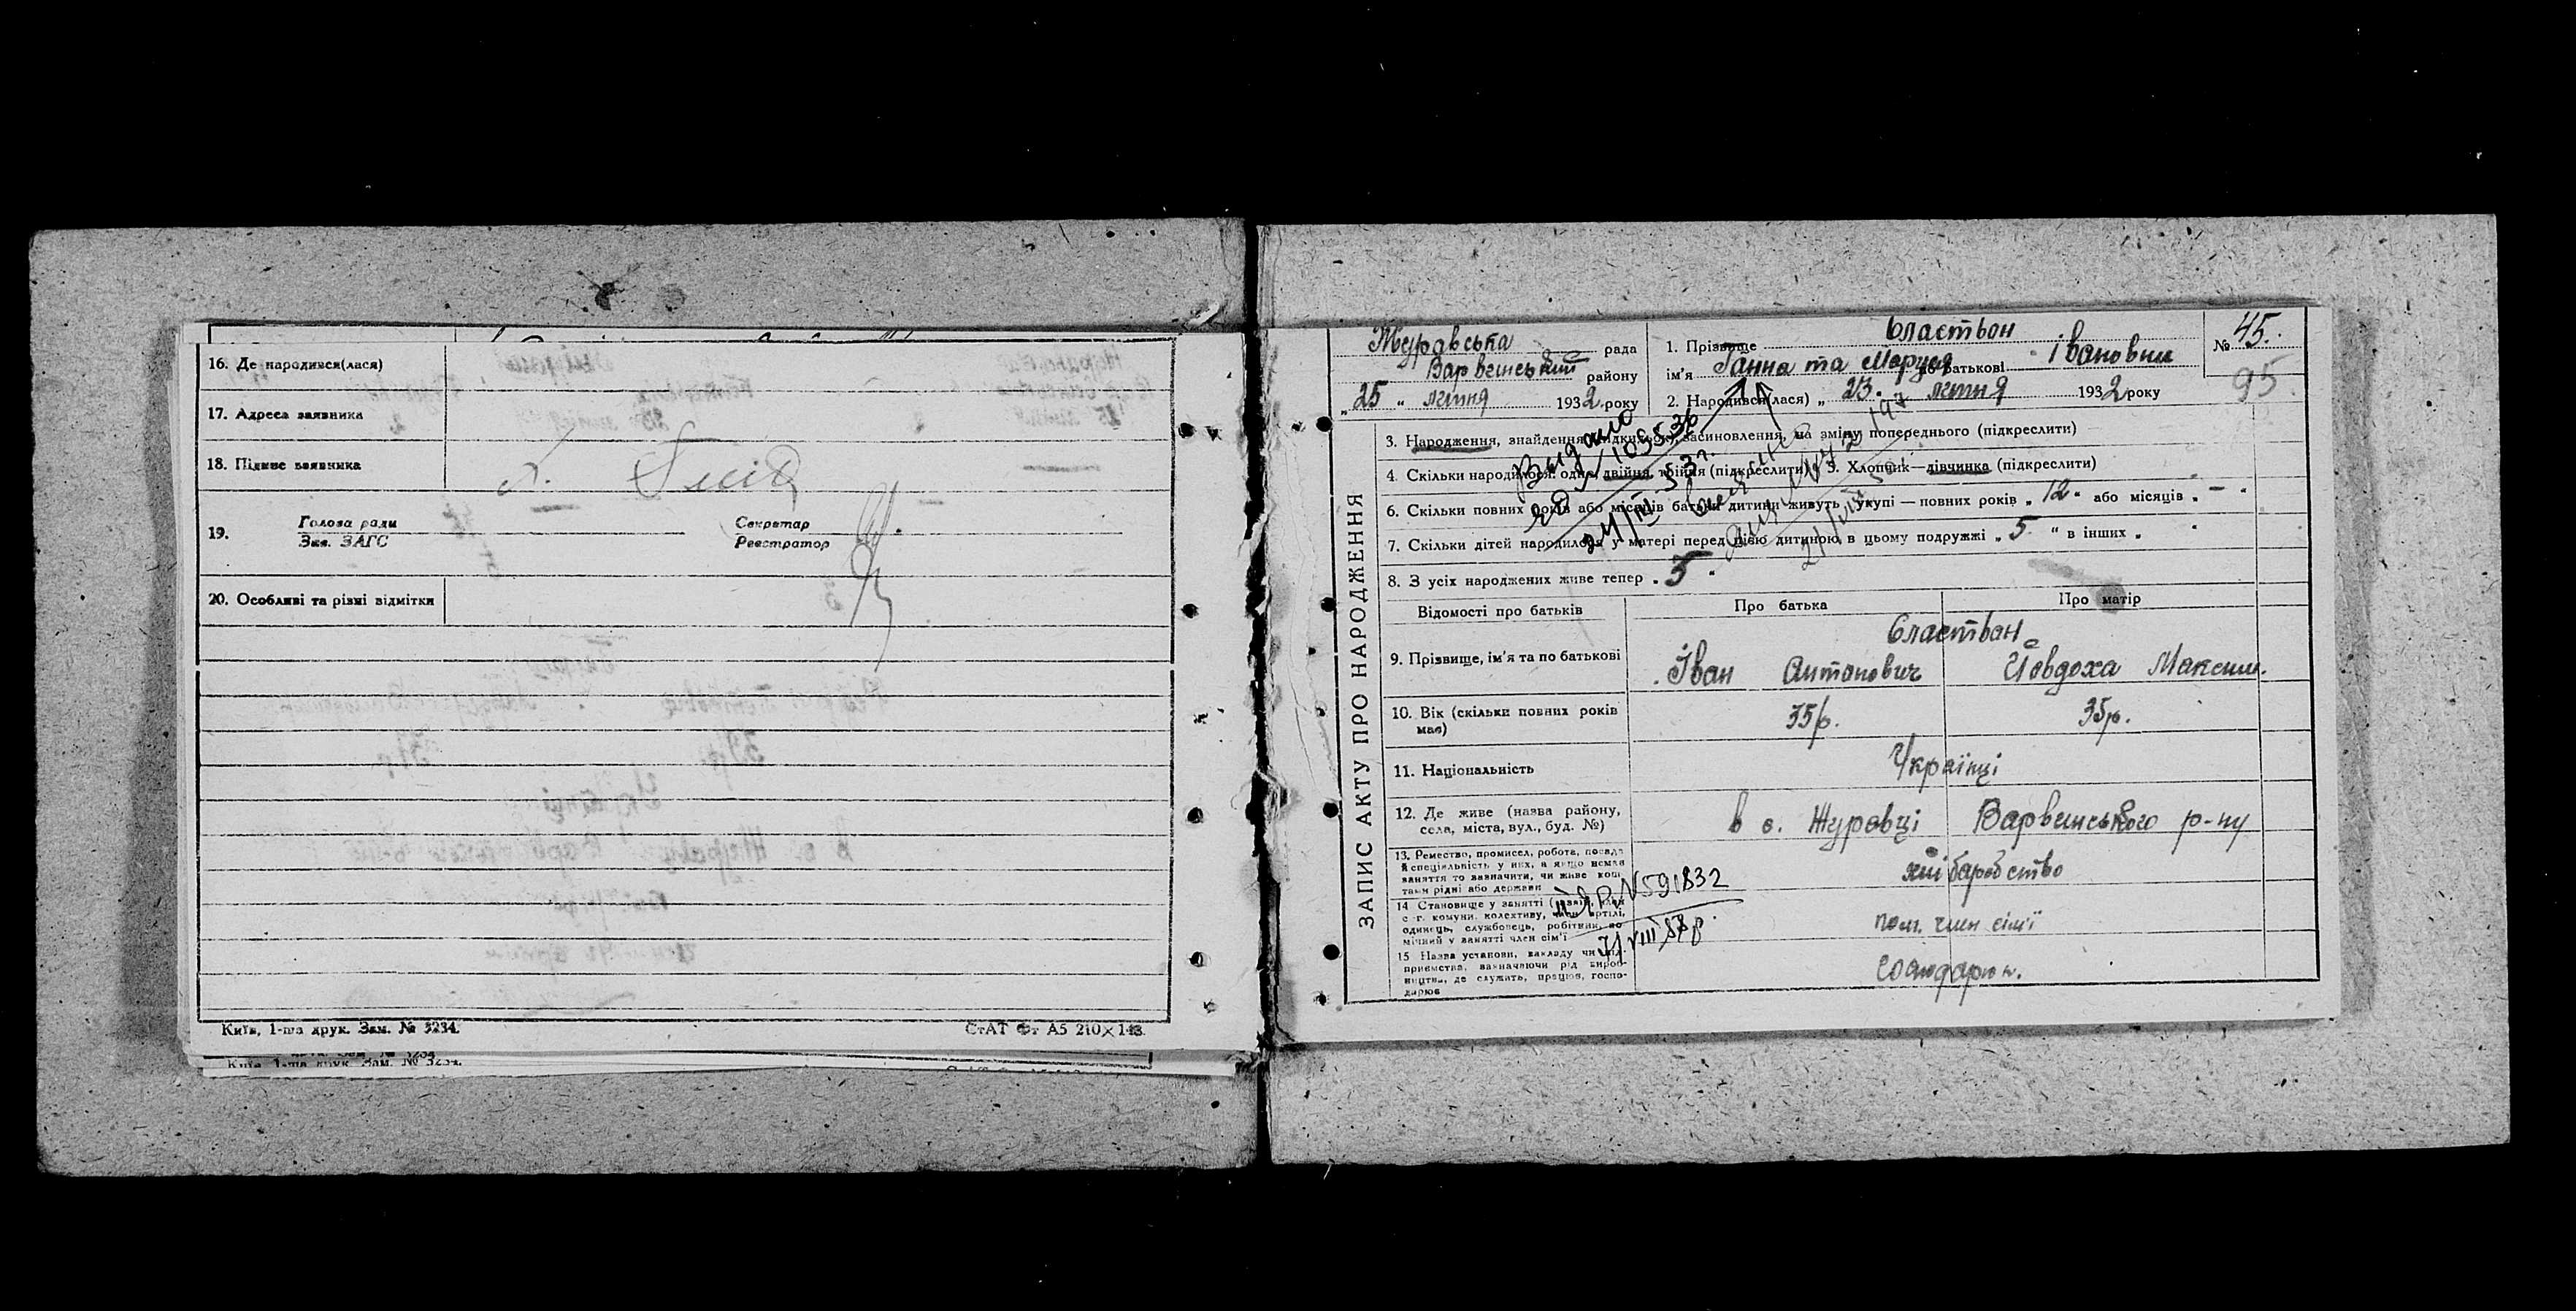 16. Де народився(лася)
17. Адреса заявника
18. Підпис заявника
19. Голова ради
Зав. ЗАГС
Секретар
Реєстратор
20. Особливі та різні відмітки
Київ, 1-ша друк. Зам. № 3234.
СтАТ Фт А5 210×143.
Київ, 1-ша друк. Зам. № 3234.
ЗАПИС АКТУ ПРО НАРОДЖЕННЯ
Журавська рада
Варвинський району
„25“ липня 1932 року
1. Прізвище Сластьон
ім'я Ганна та Маруся по батькові Івановни
2. Народився(лася) „23“ липня 1932 року
№ 45.
95
3. Народження, знайдення, підкидьок, засиновлення, на зміну попереднього (підкреслити)
4. Скільки народилося: одно, двійня, трійня (підкреслити) 5. Хлопчик—дівчинка (підкреслити)
6. Скільки повних років або місяців батьки дитини живуть укупі — повних років „12“ або місяців „—“
7. Скільки дітей народилося у матері перед цією дитиною в цьому подружжі „5“ в інших „ “
8. З усіх народжених живе тепер „5“
Видано
109536
Відомості про батьків
Про батька
Про матір
9. Прізвище, ім'я та по батькові
Сластьон
Іван Антанович
Йовдоха Максим.
10. Вік (скільки повних років має)
35р.
35р.
11. Національність
Українці
12. Де живе (назва району, села, міста, вул., буд. №)
в с. Журавці Варвинського р-ну
13. Ремество, промисел, робота, посада й спеціяльність у них, а якщо немає заняття то зазначити, чи живе коштами рідні або держави
хліборобство
14 Становище у занятті (хазяїн, член с.-г. комуни, колективу, член артілі, одинець, службовець, робітник, помічний у занятті член сім'ї
пом. член сім'ї
15 Назва установи, закладу чи підприємства, зазначаючи рід виробництва, де служить, працює, господарює
N591832